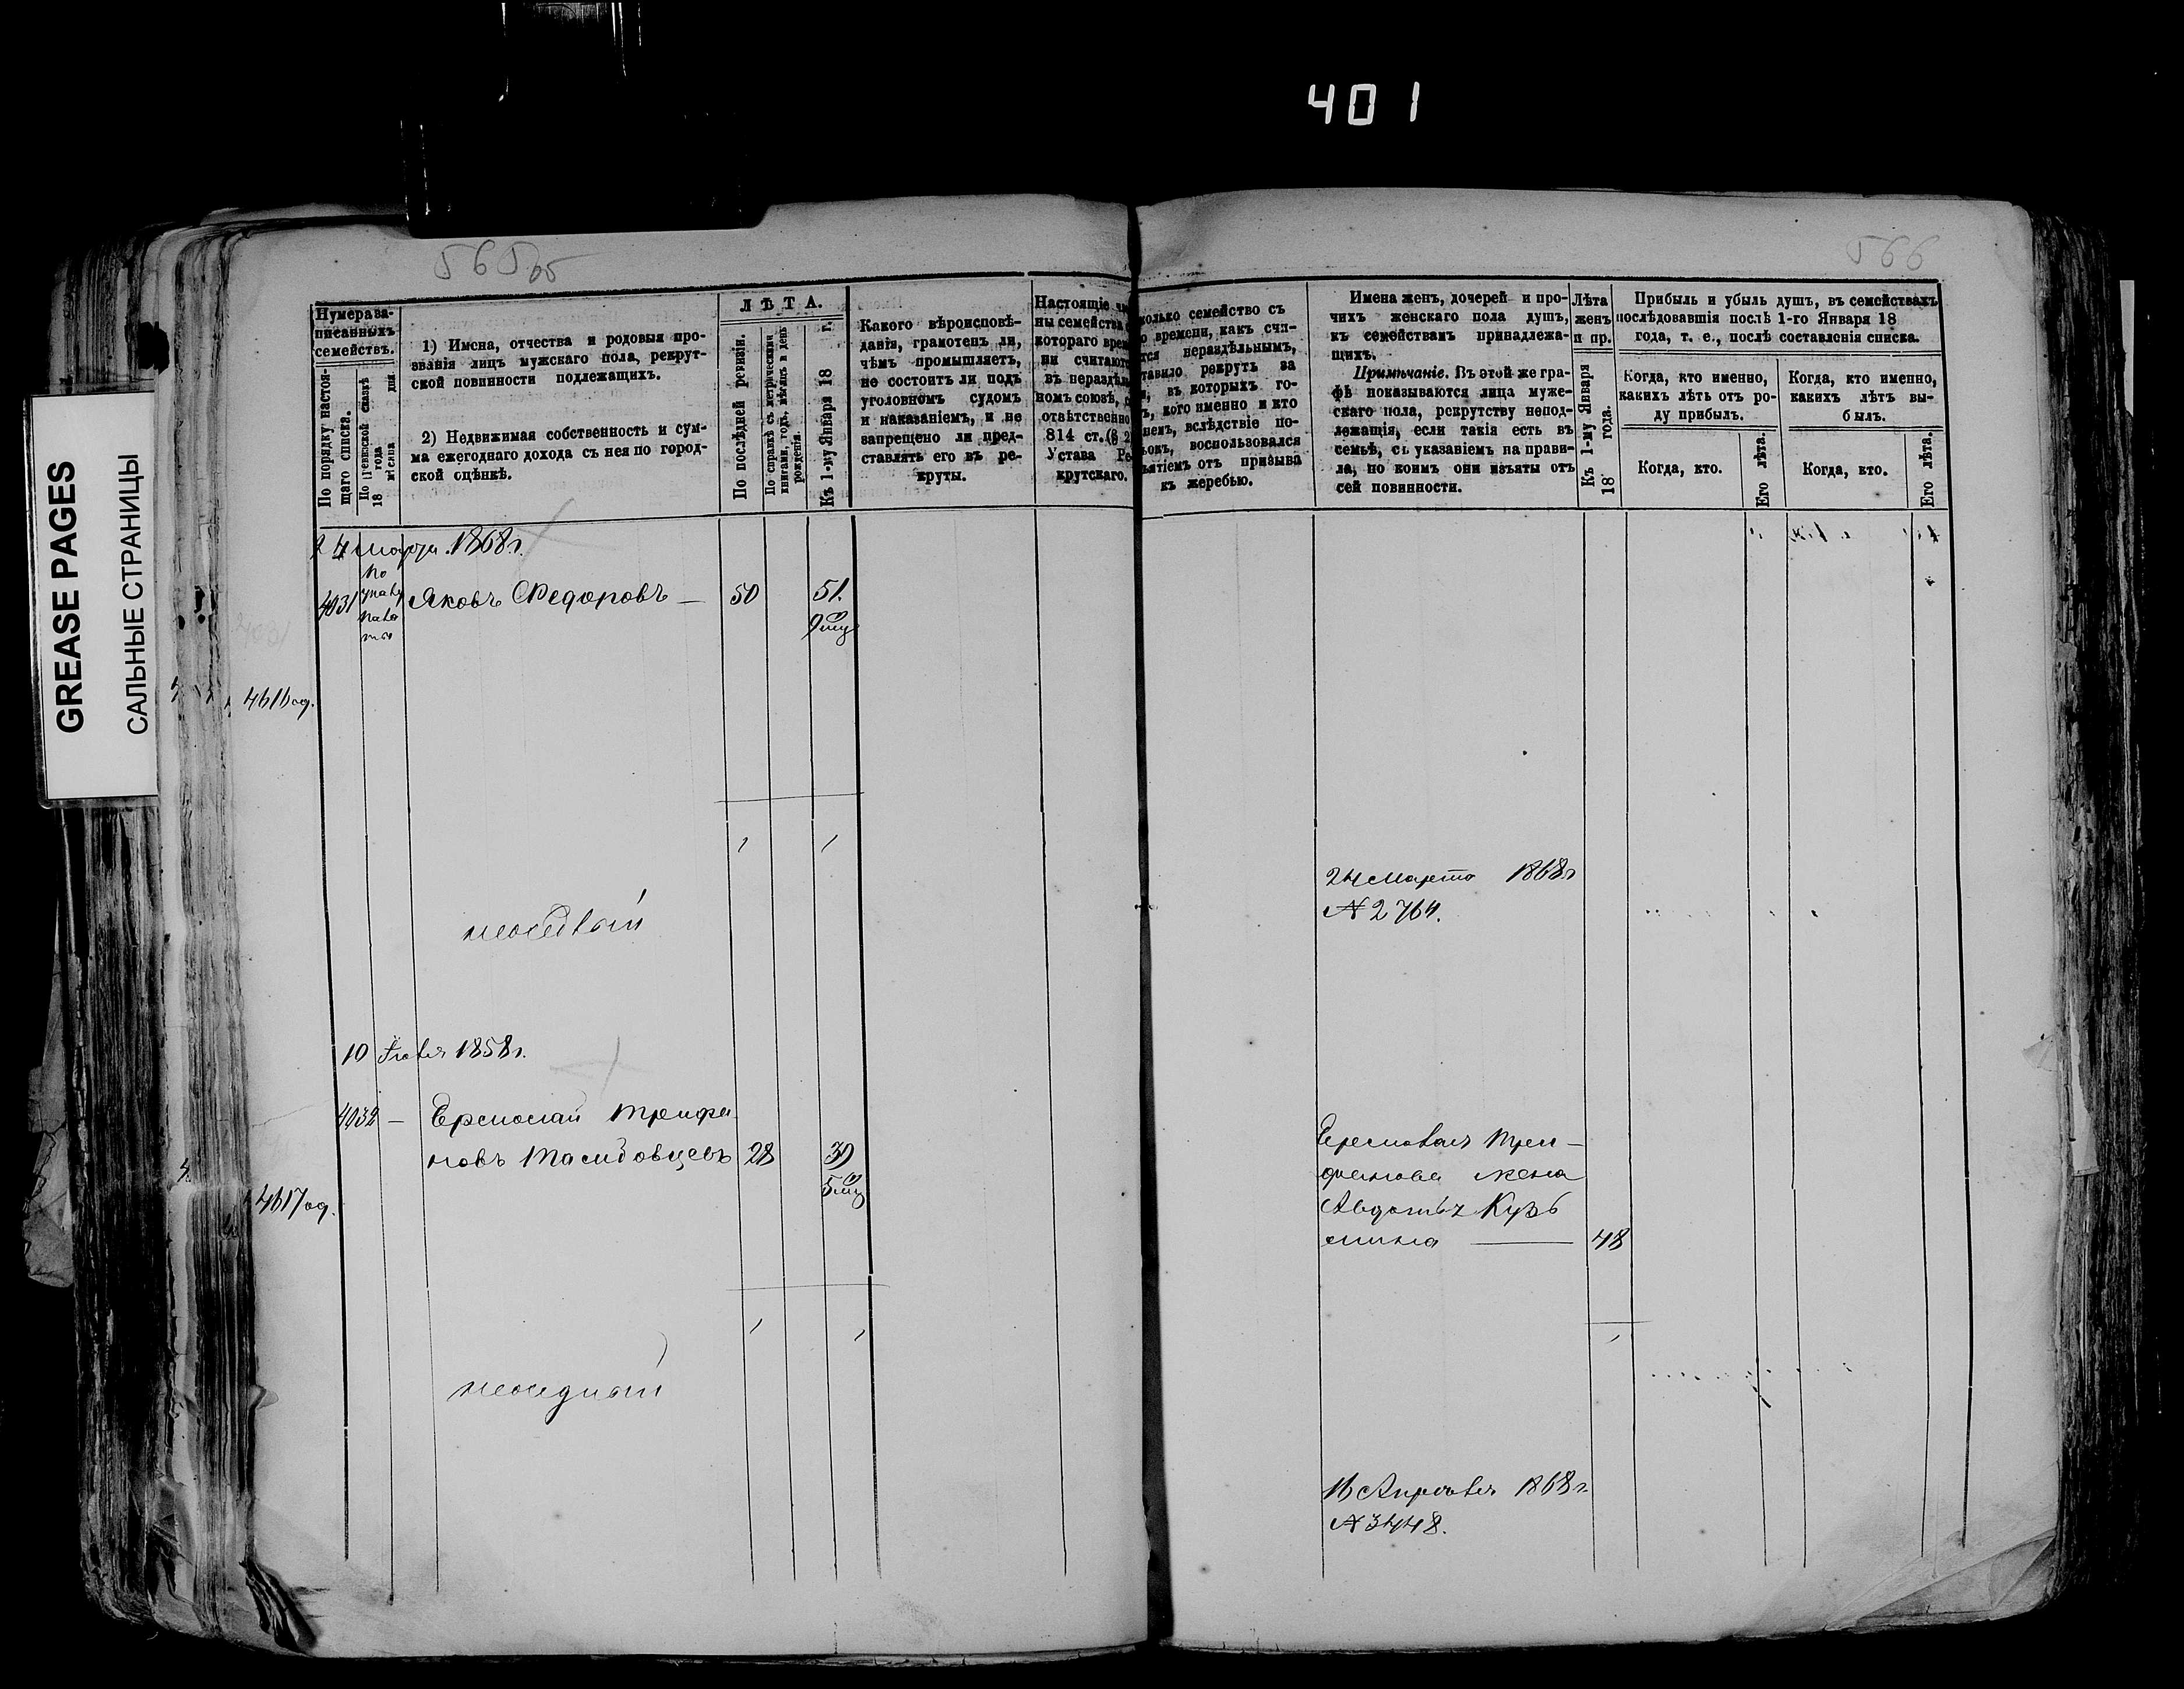 401
GREASE PAGES
САЛЬНЫЕ СТРАНИЦЫ
565об
566
Нумера за-
писанныхъ
семействъ.
По порядку настоя-
щаго списка.
По ревизской сказкѣ
18 года мѣсяца дня.
1) Имена, отчества и родовыя про-
званія лицъ мужскаго пола, рекрут-
ской повинности подлежащихъ.
2) Недвижимая собственность и сум-
ма ежегоднаго дохода съ нея по город-
ской оцѣнкѣ.
ЛѢТА.
По послѣдней ревизіи.
По справкѣ съ метрическими
книгами, годъ, мѣсяцъ и день
рожденія.
Къ 1-му Января 18 г.
Какого вѣроисповѣ-
данія, грамотенъ ли,
чѣмъ промышляетъ,
не состоитъ ли подъ
уголовномъ судомъ
и наказаніемъ, и не
запрещено ли пред-
ставлять его въ ре-
круты.
Настоящіе
ны семейства
котораго вре
ни считают
въ нераздѣл
номъ союзѣ,
отвѣтственно
814 ст. (§ 2
Устава Ре
крутскаго.
колько семейство съ
о времени, какъ счи-
тся нераздѣльнымъ,
тавило рекрутъ за
, въ которыхъ го-
ъ, кого именно и кто
немъ, вслѣдствіе по-
ьокъ, воспользовался
ъятіемъ отъ призыва
къ жеребью.
Имена женъ, дочерей и про-
чихъ женскаго пола душъ,
къ семействамъ принадлежа-
щихъ.
Примѣчаніе. Въ этой же гра-
фѣ показываются лица муже-
скаго пола, рекрутству непод-
лежащія, если такія есть въ
семьѣ, съ указаніемъ на прави-
ла, по коимъ они изъяты отъ
сей повинности.
Лѣта
женъ
и пр.
Къ 1-му Января
18 года.
Прибыль и убыль душъ, въ семействахъ
послѣдовавшія послѣ 1-го Января 18
года, т. е., послѣ составленія списка.
Когда, кто именно,
какихъ лѣтъ отъ ро-
ду прибылъ.
Когда, кто.
Его лѣта.
Когда, кто именно,
какихъ лѣтъ вы-
былъ.
Когда, кто.
Его лѣта.
24 Марта 1868 г.
4031
По
Яковъ Ѳедоровъ —
50
51.
9 мц
4031
4616 од.
1
1
24 Марта 1868 г
№ 2764.
10 1858 г.
4032 —
Ермолай Трифо
новъ
28
39
5 мц
4617 од.
Ермолая Три-
фонова жена
Авдотья Кузь
мина — 48
1
1
1
неоседлый
16 Апреля 1868 г.
№ 3448.